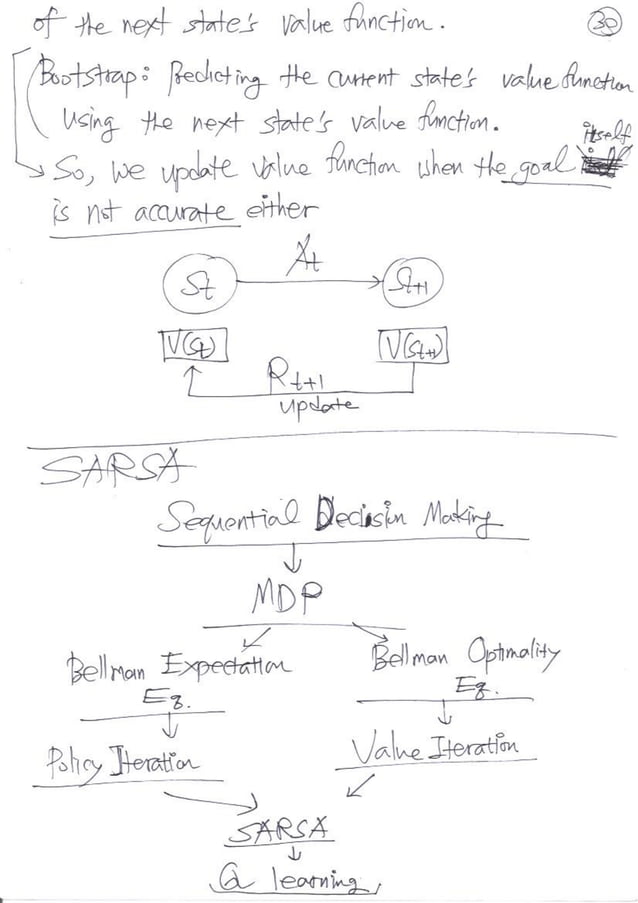 of the next state's value function.
30
Bootstrap: Predicting the current state's value function
using the next state's value function.
itself
So, we update value function when the goal
is not accurate either
At
St
St+1
V(St)
V(St+1)
Rt+1
update
SARSA
Sequential Decision Making
MDP
Bellman Expectation
Eq.
Bellman Optimality
Eq.
Policy Iteration
Value Iteration
SARSA
Q learning